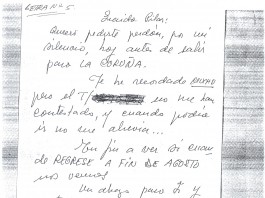 LETRA Nº 5
Querida Pilar:
Quiero pedirte perdon, por mi
silencio, hoy antes de salir
para LA CORUÑA.
Te he recordado
pero el T/ no me han
contestado, y cuando podia
ir no me
En fin a ver si cuan
do REGRESE A FIN DE AGOSTO
nos vemos
Un abrazo para ti y